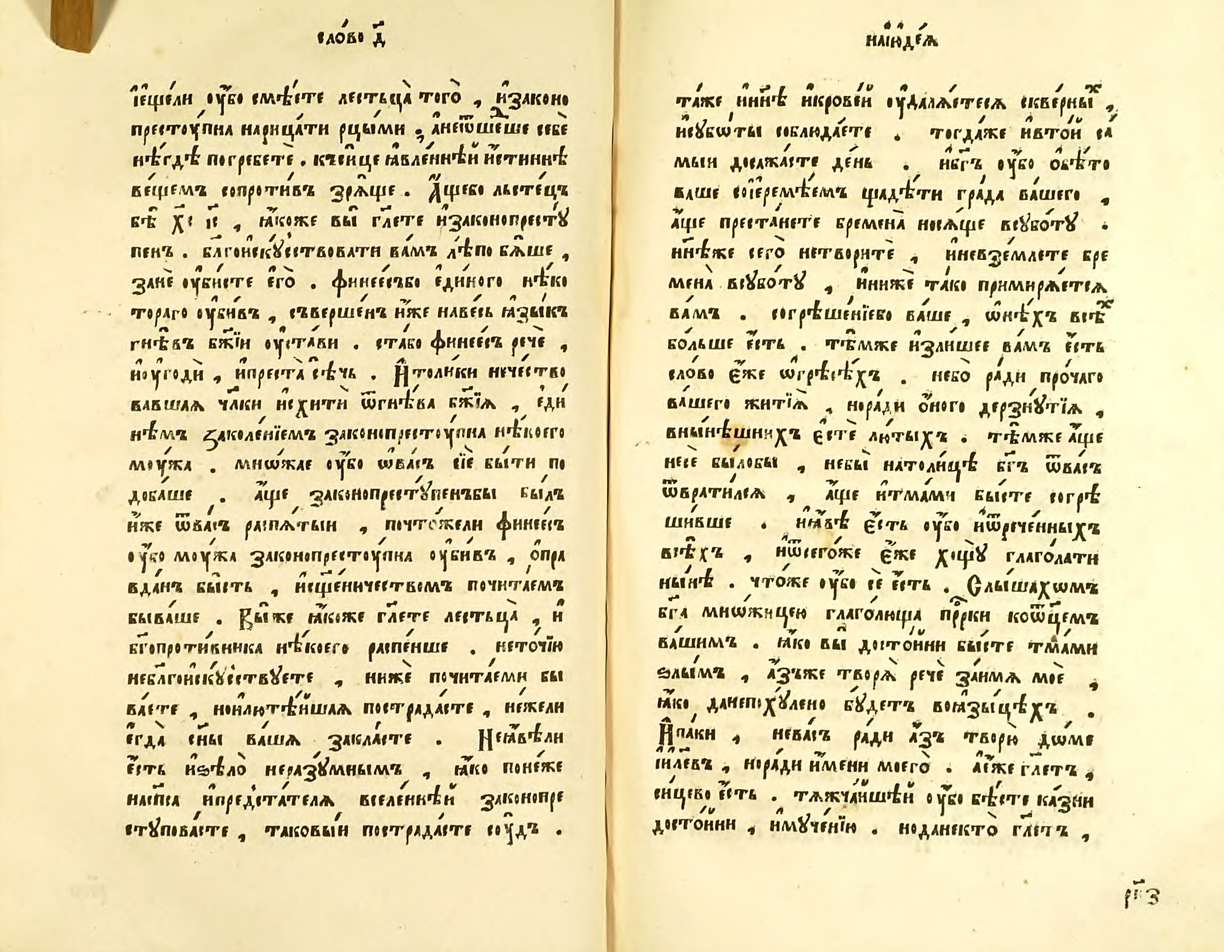 сло́во д҃
і҆ере́ли ᲂу҆́бо смѣ́ете лестьца̀ того̀ , и҆законо
престоу́пна нарица́ти рцы́ми , а҆не ѿше́дше себѐ
нѣ́гдѣ погребе́те . къ си́це ꙗ҆вле́ннѣй и҆́стиннѣ
ве́щемъ сопроти́въ зрѧ́ще . А҆́щебо льсте́цъ
бѣ̀ хс҃ і҆с҃ , ꙗ҆́коже вы̀ гл҃ете и҆законопресту
пенъ . бл҃гои҆скꙋ́ствовати ва́мъ лѣ́по бѧ́ше ,
занѐ ᲂу҆би́сте є҆го̀ . финее́събо є҆ди́ного нѣ́ко
тораго ᲂу҆би́въ , съверше́нъ и҆́же наве́сь ꙗ҆зы́къ
гнѣ́въ бж҃їи ᲂу҆ста́ви . ста́бо финее́съ речѐ ,
и҆ᲂу҆годѝ , и҆преста̀ сѣ́чь . И҆ толи́ки нече́ство
вавшаѧ чл҃ки и҆схитѝ ѿгнѣ́ва бж҃їѧ , є҆ди
нѣ́мъ заколе́нїемъ законопрестоу́пна нѣ́коего
моу́жа . мно́жае ᲂу҆́бо ѡ҆ва́съ сїѐ бы́ти по
доба́ше . а҆́ще законопресту́пенъбы бы́лъ
и҆́же ѿва́съ распѧ́тыи , почто́жели финее́съ
ᲂу҆́бо моу́жа законопрестоу́пна ᲂу҆би́въ , ѡ҆пра
вда́нъ бы́сть , и҆сщ҃е́ничествомъ почита́емъ
быва́ше . Вы́же ꙗ҆́коже гл҃ете лестьца̀ , и҆
бг҃опроти́вника нѣ́коего распе́нше . нето́чїю
небл҃гои҆скꙋ́ствꙋете , нижѐ почита́еми бы
ва́ете , нои҆лютѣ́йшаѧ пострада́сте , не́жели
є҆гда̀ сы́ны ва́шѧ закла́сте . Неꙗ҆́вѣли
є҆́сть и҆ѕѣло̀ неразꙋ́мнымъ , ꙗ҆́ко поне́же
насп҃са и҆предста́телѧ вселе́ннѣй законопре
стꙋпова́сте , таковы́и пострада́сте соу́дъ .
наі҆ꙋде́ѧ
та́же нн҃ѣ и҆кро́вей ᲂу҆далѧ́етесѧ скве́рных ,
и҆сꙋбѡ́ты соблюда́ете . тогда́же и҆вто́й са́
мыи досажда́сте де́нь . и҆бг҃ъ ᲂу҆́бо ѡ҆бѣ́то
ваше со і҆еремѣ́емъ щадѣ́ти гра́да ва́шего ,
а҆́ще преста́нете бремена̀ носѧ́ще всꙋбо́тꙋ .
нн҃ѣже сего̀ нетвори́те , и҆невзе́млете бре
мена̀ всꙋбо́тꙋ , и҆нижѐ та́ко примирѧ́етсѧ
ва́мъ . согрѣше́нїебо ва́ше , ѡ҆нѣ́хъ всѣ́х
бо́льше є҆́сть . тѣ́мже и҆зли́шее ва́мъ є҆́сть
сло́во є҆́же ѡ҆грѣсѣ́хъ . небо̀ ра́ди про́чаго
ва́шего житїѧ̀ , нора́ди ѻ҆́ного дерзнꙋ́тїѧ ,
вны́нѣшнихъ є҆стѐ лю́тыхъ . тѣ́мже а҆́ще
несѐ бы́лобы , небы̀ натоли́цѣ бг҃ъ ѿва́съ
ѿврати́лсѧ , а҆́ще и҆тма́ми бы́сте согрѣ
ши́вше . и҆ꙗ҆́вѣ є҆́сть ᲂу҆́бо и҆ѿрече́нныхъ
всѣ́хъ , и҆ѿсего́же є҆́же хощꙋ̀ глаго́лати
ны́нѣ . что́же ᲂу҆́бо сѐ є҆́сть . Слы́шахомъ
бг҃а мно́жицею глаго́люща прⷪ҇рки ко ѻ҆тцє́мъ
ва́шимъ . ꙗ҆́ко вы̀ досто́йни бы́сте тма́ми
ѕлы́мъ , а҆́зъже творѧ̀ речѐ за и҆́мѧ моѐ ,
ꙗ҆́ко данепохꙋ́лено бꙋ́детъ воꙗ҆зы́цѣхъ .
И҆ па́ки , нева́съ ра́ди а҆́зъ творю̀ до́ме
і҆и҃левъ , нора́ди и҆́мени моего̀ . а҆є҆́же гл҃етъ ,
си́цево є҆́сть . тѧжча́йшей ᲂу҆́бо бѣ́сте ка́зни
досто́йни , и҆мꙋче́нїю . нода́некто̀ гл҃етъ ,
рг҃з